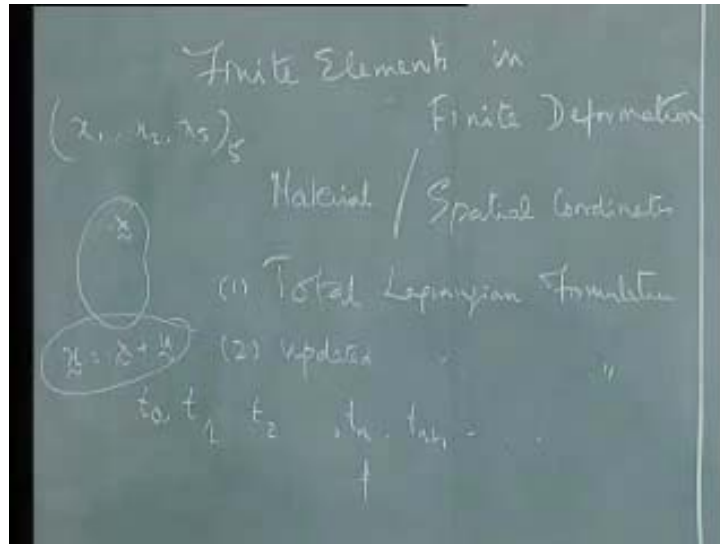 Finite Element in
Finite Deformation
(x₁, x₂, x₃)₅
Material / Spatial Coordinates
x
(1) Total Lagrangian Formulation
x = x + u
(2) updated " "
t₀, t₁ t₂ , tₙ, tₙ₊₁ - . . .